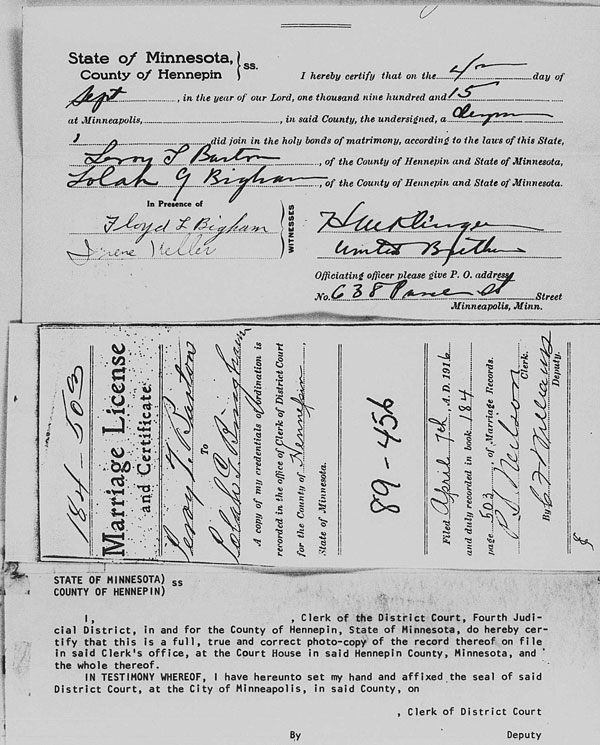 State of Minnesota, } ss.
County of Hennepin
I hereby certify that on the 4th day of
Sept, in the year of our Lord, one thousand nine hundred and 15
at Minneapolis, , in said County, the undersigned, a
did join in the holy bonds of matrimony, according to the laws of this State,
Leroy T Barton, of the County of Hennepin and State of Minnesota,
Lolah G Bigham, of the County of Hennepin and State of Minnesota.
In Presence of
Floyd L Bigham
Irene Keller
WITNESSES
H M Klinger
United Brethren
Officiating officer please give P. O. address
No. 638 St Street
Minneapolis, Minn.
184-503
Marriage License
and Certificate
Leroy T. Barton
To
Lolah G. Bingham
A copy of my credentials of ordination is
recorded in the office of Clerk of District Court
for the County of Hennepin,
State of Minnesota.
89-456
Filed April 7th, A. D. 1916
and duly recorded in book 184
page 503, of Marriage Records.
P. S. Neilson
Clerk.
By C F Williams
Deputy.
STATE OF MINNESOTA) ss
COUNTY OF HENNEPIN)
I, , Clerk of the District Court, Fourth Judi-
cial District, in and for the County of Hennepin, State of Minnesota, do hereby cer-
tify that this is a full, true and correct photo-copy of the record thereof on file
in said Clerk's office, at the Court House in said Hennepin County, Minnesota, and
the whole thereof.
IN TESTIMONY WHEREOF, I have hereunto set my hand and affixed the seal of said
District Court, at the City of Minneapolis, in said County, on
, Clerk of District Court
By Deputy